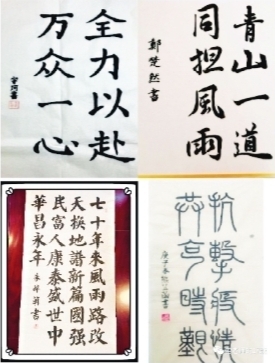 全力以赴
万众一心
青山一道
同担風雨
鄭楚然書
七十年来風雨路改
天换地谱新篇國强
民富人康泰盛世中
華昌永年
抗擊疫情
共克時艱